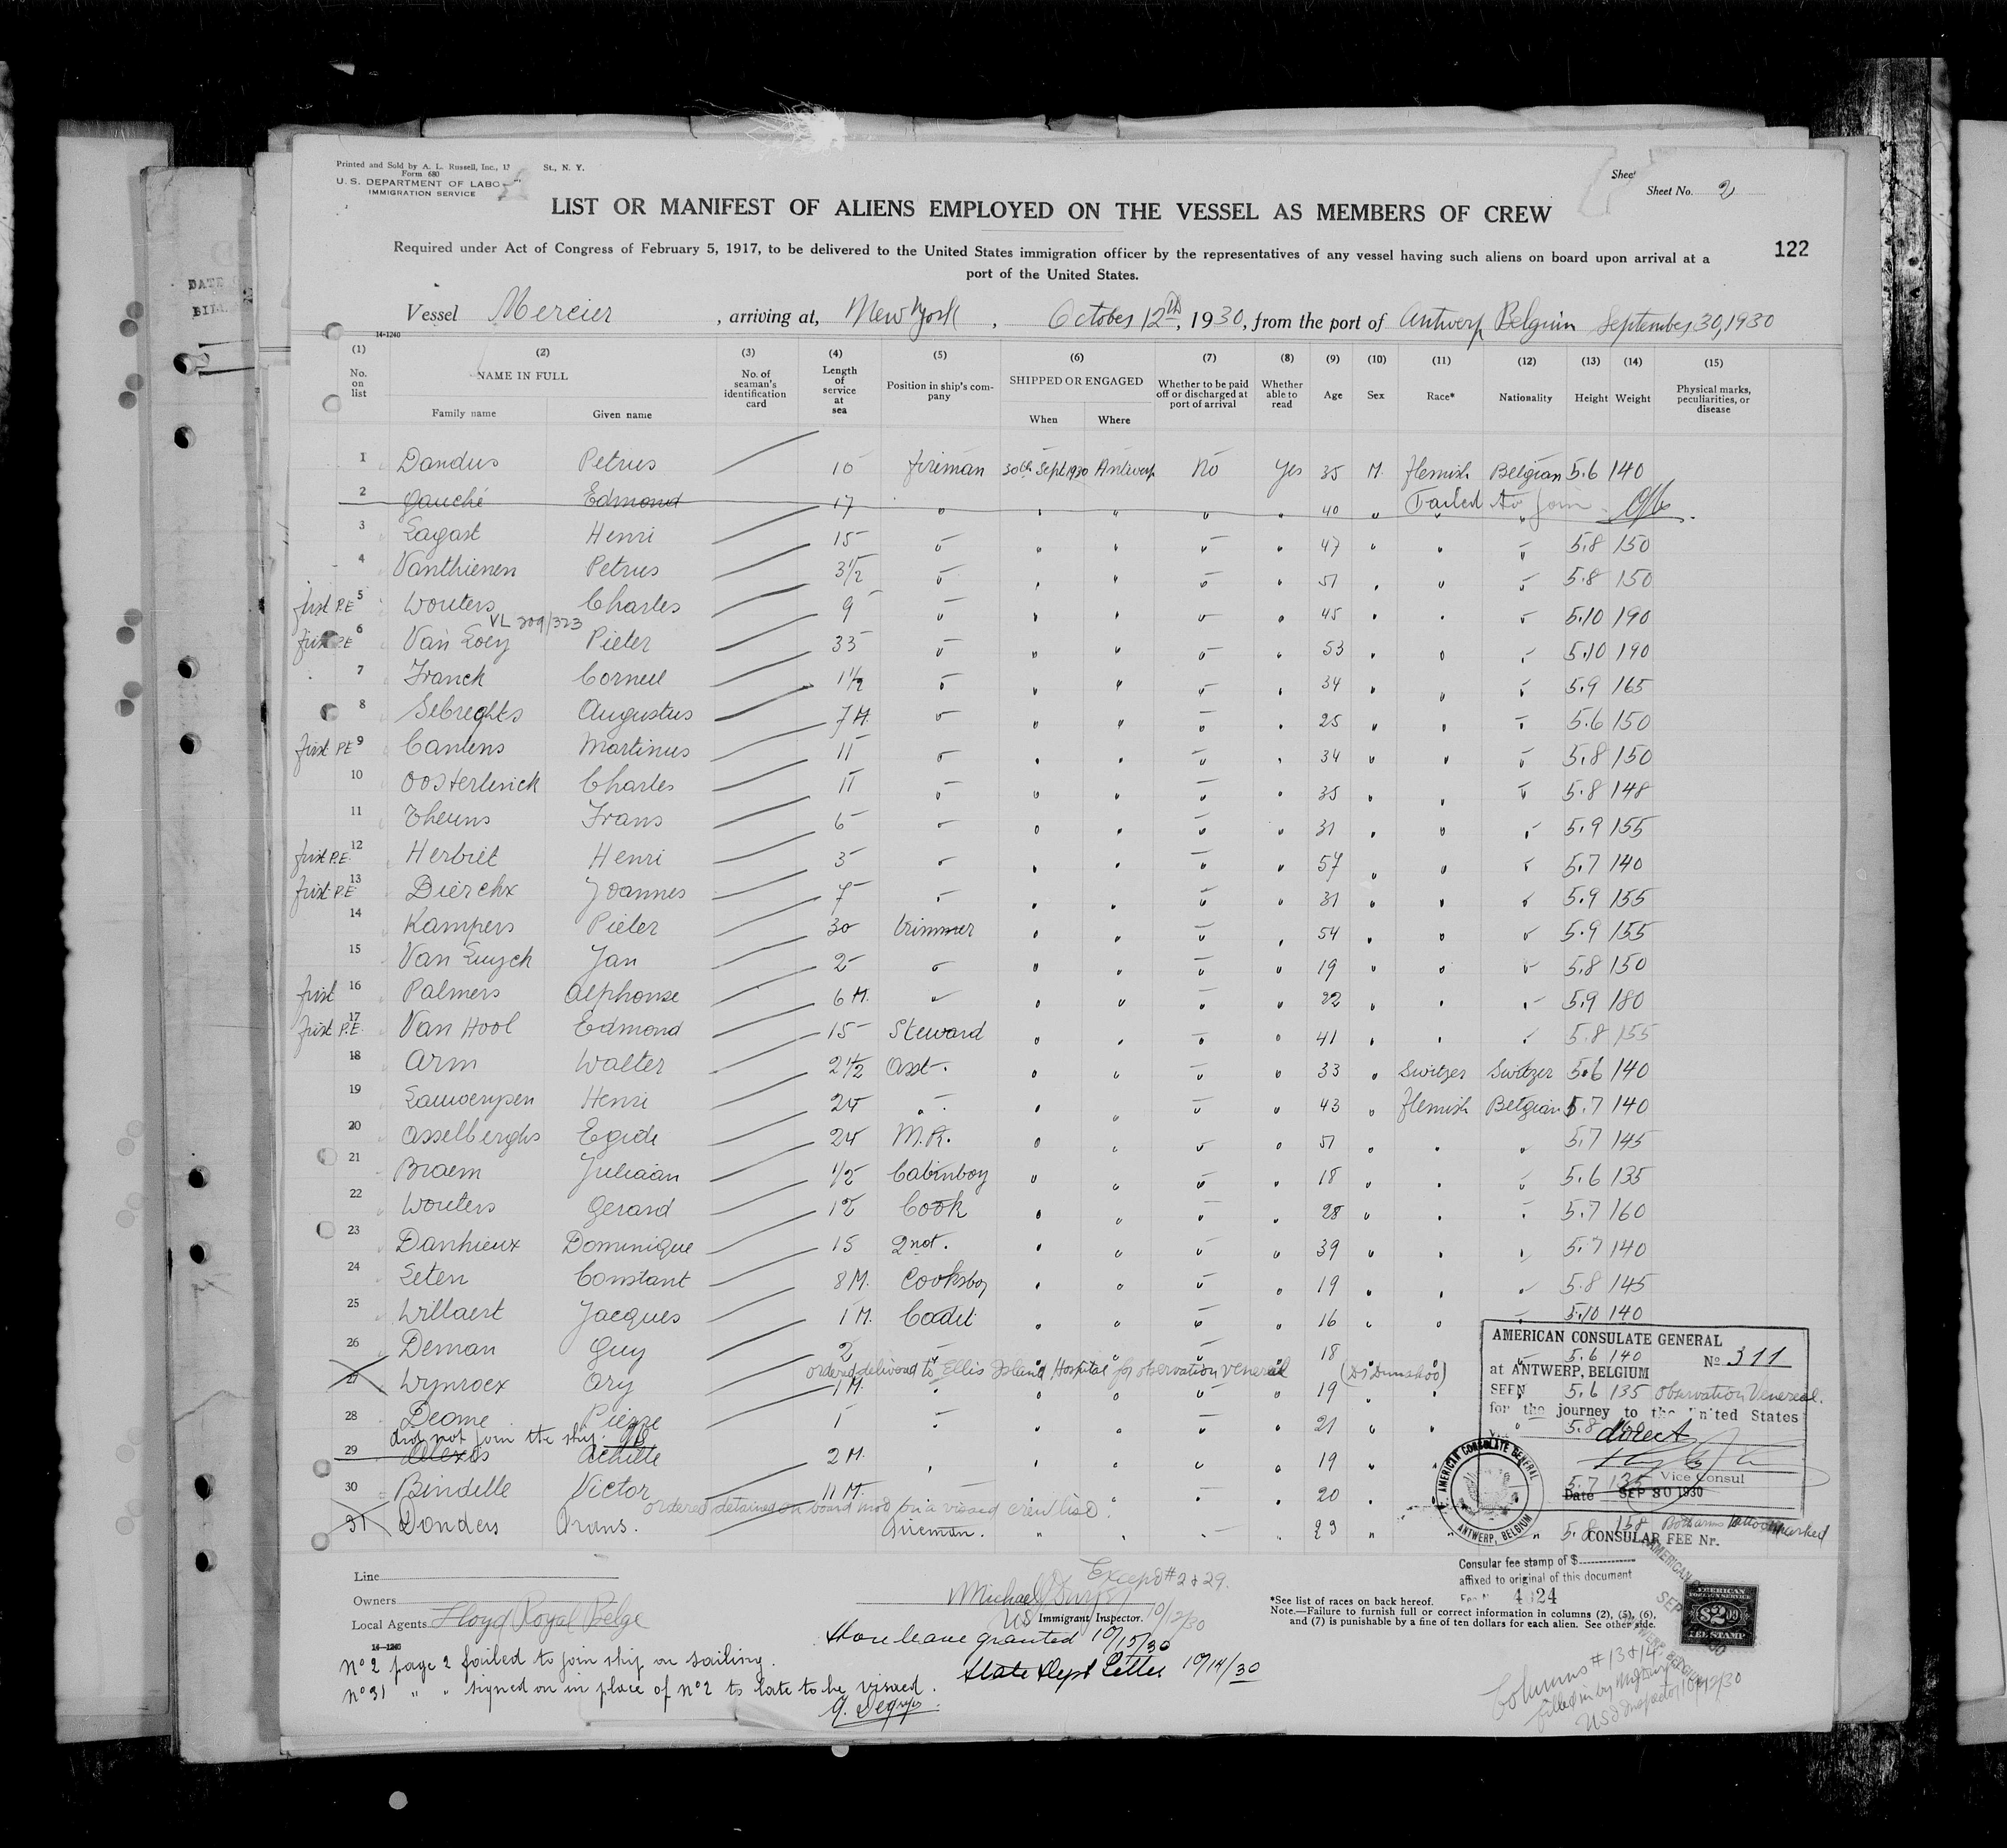 Printed and Sold by A. L. Russell, Inc., 1 St., N. Y.
Form 680
U. S. DEPARTMENT OF LABO
IMMIGRATION SERVICE
Sheet
Sheet No. 2
LIST OR MANIFEST OF ALIENS EMPLOYED ON THE VESSEL AS MEMBERS OF CREW
Required under Act of Congress of February 5, 1917, to be delivered to the United States immigration officer by the representatives of any vessel having such aliens on board upon arrival at a
port of the United States.
122
Vessel Mercier , arriving at, New York , October 12th, 1930, from the port of Antwerp Belgium September 30, 1930
14-1240
(1) (2) (3) (4) (5) (6) (7) (8) (9) (10) (11) (12) (13) (14) (15)
No. on list NAME IN FULL Family name Given name No. of seaman's identification card Length of service at sea Position in ship's company SHIPPED OR ENGAGED When Where Whether to be paid off or discharged at port of arrival Whether able to read Age Sex Race* Nationality Height Weight Physical marks, peculiarities, or disease
1 Dandus Petrus 10 fireman 30th Sept 1930 Antwerp No Yes 35 M. Flemish Belgian 5.6 140
2 Gauché Edmond 17 " " " " " 40 " Failed to join
3 Lagast Henri 15 " " " " " 47 " " " 5.8 150
4 Vanthienen Petrus 3 1/2 " " " " " 51 " " " 5.8 150
first P.E 5 Wouters Charles 9 " " " " " 45 " " " 5.10 190
VL 209/323
first P.E 6 Van Loey Pieter 33 " " " " " 53 " " " 5.10 190
7 Franck Corneel 1 1/2 " " " " " 34 " " " 5.9 165
8 Sebreghts Augustus 7 M. " " " " " 25 " " " 5.6 150
first P.E 9 Caniens Martinus 11 " " " " " 34 " " " 5.8 150
10 Oosterlinck Charles 11 " " " " " 35 " " " 5.8 148
11 Theuns Frans 6 " " " " " 31 " " " 5.9 155
first P.E. 12 Herbiet Henri 3 " " " " " 57 " " " 5.7 140
first P.E. 13 Dierckx Joannes 7 " " " " " 31 " " " 5.9 155
14 Kampers Pieter 30 trimmer " " " " 54 " " " 5.9 155
15 Van Luyck Jan 2 " " " " " 19 " " " 5.8 150
first 16 Palmers Alphonse 6 M. " " " " " 22 " " " 5.9 180
first P.E. 17 Van Hool Edmond 15 Steward " " " " 41 " " " 5.8 155
18 Arm Walter 2 1/2 Asst. " " " " 33 " Switzer Switzer 5.6 140
19 Lauwerysen Henri 24 " " " " " 43 " Flemish Belgian 5.7 140
20 Asselberghs Egide 24 M.R. " " " " 51 " " " 5.7 145
21 Braem Juliaan 1/2 Cabinboy " " " " 18 " " " 5.6 135
22 Wouters Gerard 12 Cook " " " " 28 " " " 5.7 160
23 Danhieux Dominique 15 2nd. " " " " 39 " " " 5.7 140
24 Leten Constant 8 M. Cooksboy " " " " 19 " " " 5.8 145
25 Willaert Jacques 1 M. Cadet " " " " 16 " " " 5.10 140
26 Deman Guy 2 " " " " " 18 " " " 5.6 140
ordered delivered to Ellis Island Hospital for observation venereal
27 Wynrocx Ary 1 M. " " " " " 19 " " " 5.6 135 Observation Venereal.
28 Deome Pierre 1 " " " " " 21 " " " 5.8
did not join the ship.
29 Achille 2 M. " " " " " 19 " "
30 Bindelle Victor 11 M. " " " " " 20 " " 5.7 135
ordered detained on board mod for a visaed crew list.
31 Donders Frans. Fireman. " " " " 23 " " " 5.8 158 Both arms tattoo marked
AMERICAN CONSULATE GENERAL
No 311
at ANTWERP, BELGIUM
SEEN
for the journey to the United States
direct
Vice Consul
Date SEP 30 1930
AMERICAN CONSULATE GENERAL
ANTWERP, BELGIUM
CONSULAR FEE Nr.
Consular fee stamp of $
affixed to original of this document
4024
AMERICAN FOREIGN SERVICE $2.00 FEE STAMP
Line
Owners
Local Agents Lloyd Royal Belge
14-1240
Except #2 & 29.
Michael
US Immigrant Inspector. 10/12/30
Shore leave granted 10/15/30
State Dept Letter 10/14/30
*See list of races on back hereof.
Note.—Failure to furnish full or correct information in columns (2), (5), (6),
and (7) is punishable by a fine of ten dollars for each alien. See other side.
No 2 page 2 failed to join ship on sailing.
No 31 " " signed on in place of no 2 to late to be visaed.
Columns #13 & 14
filled in by
US Inspector 10/12/30